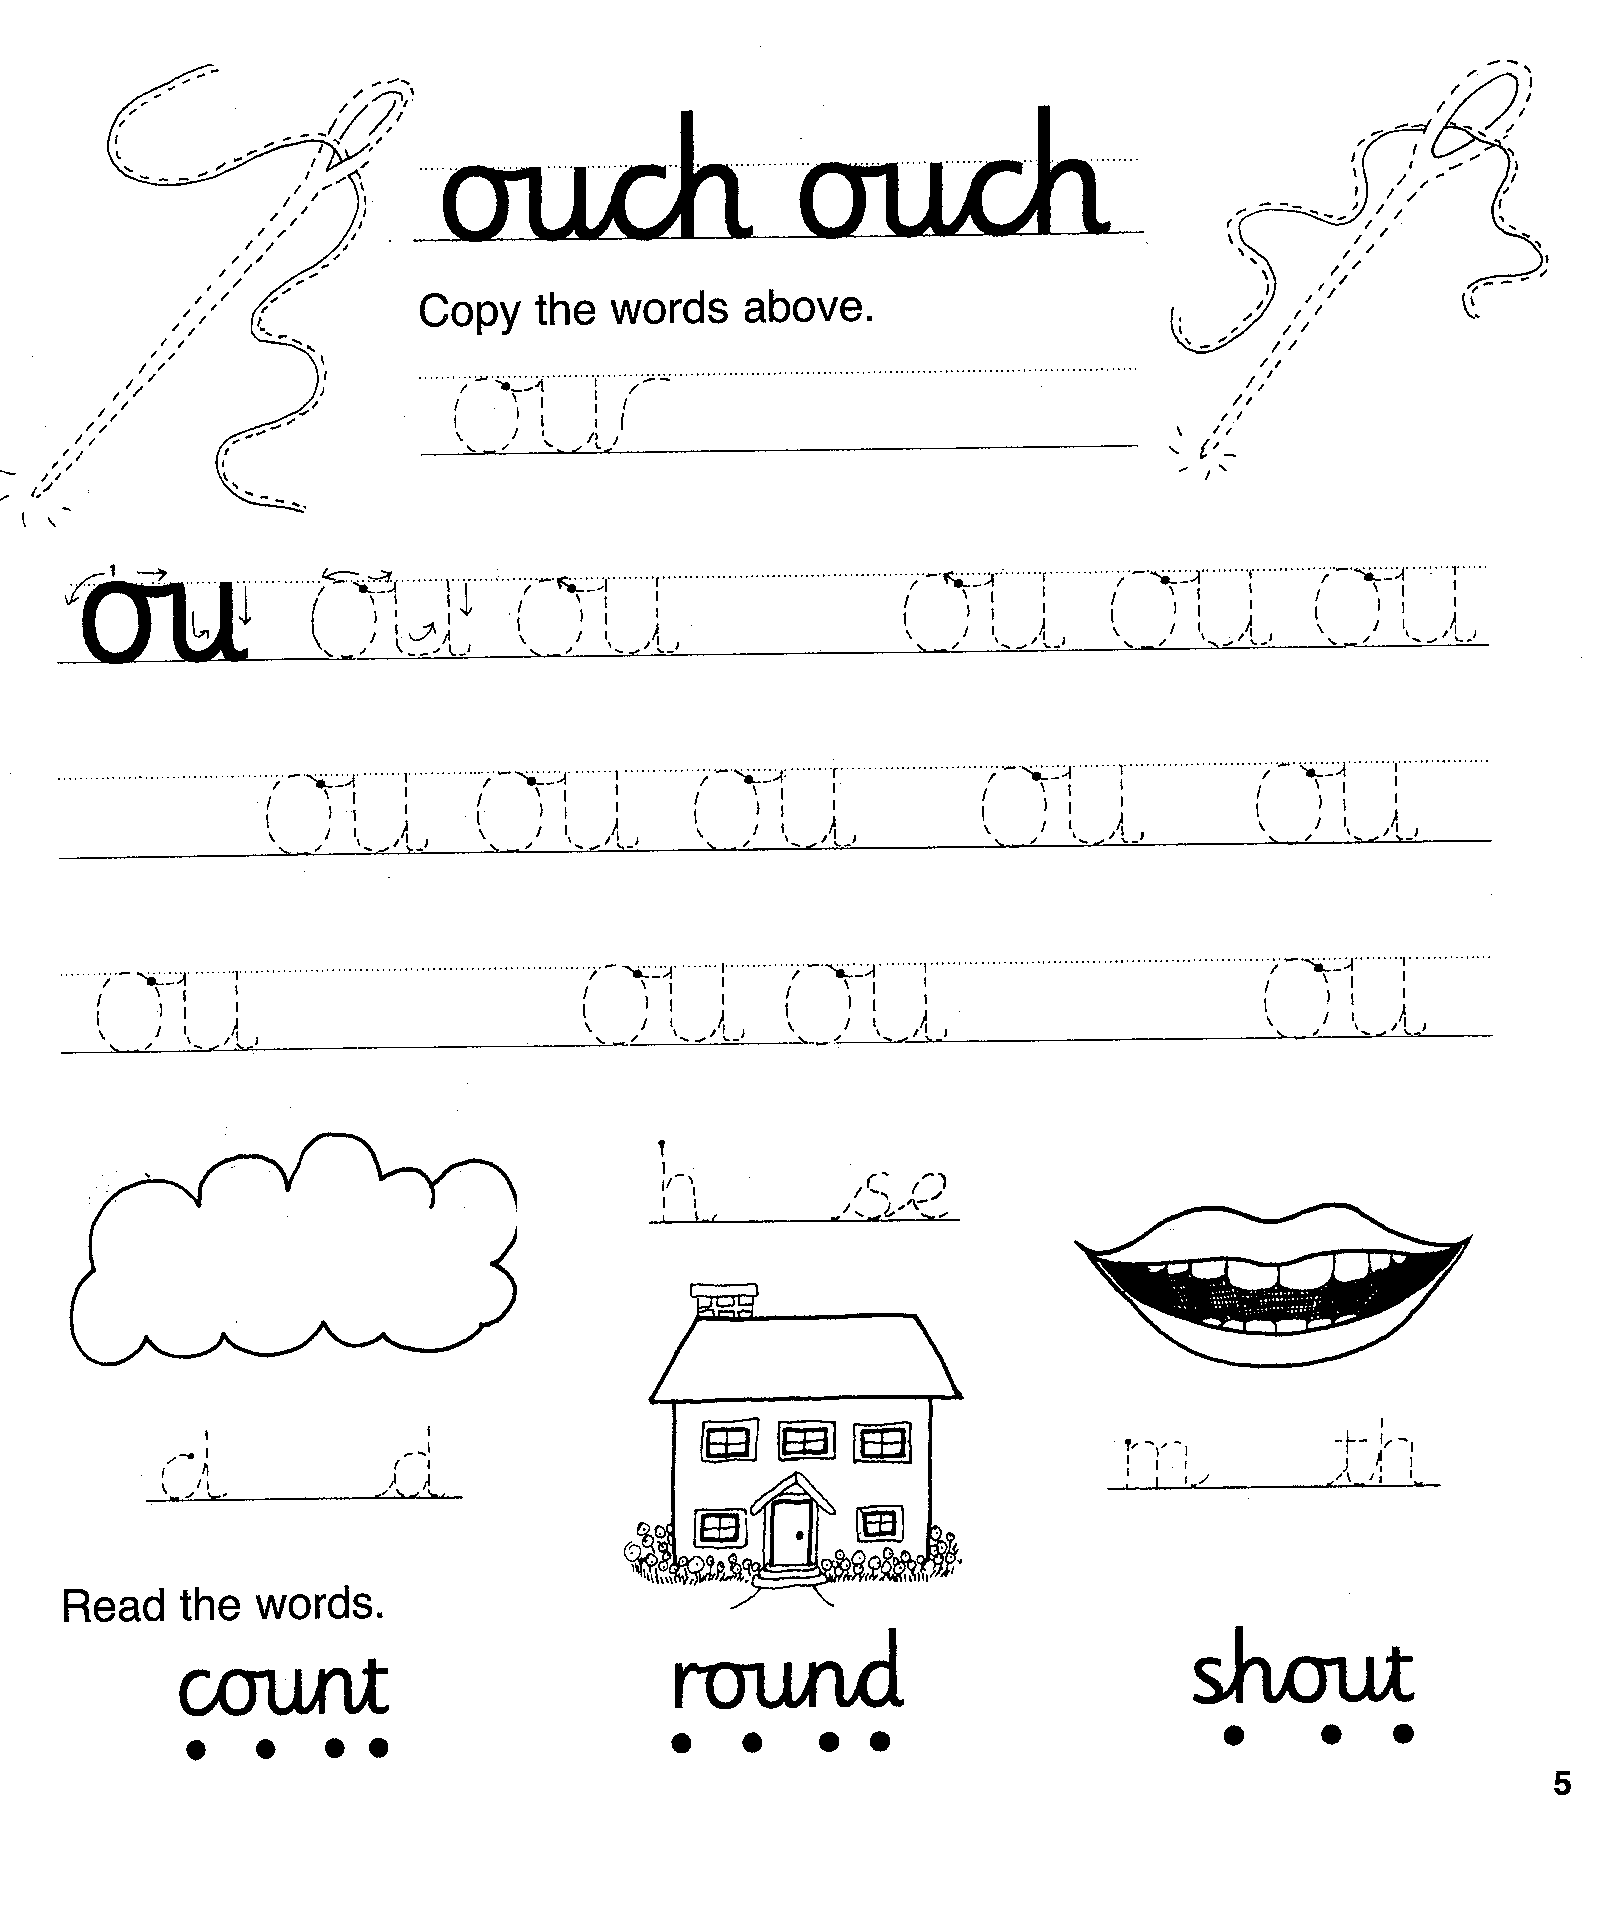 ouch ouch
Copy the words above.
ou
ou ou ou ou ou ou
ou ou ou ou ou
ou ou ou ou
h se
cl d
m th
Read the words.
count round shout
5